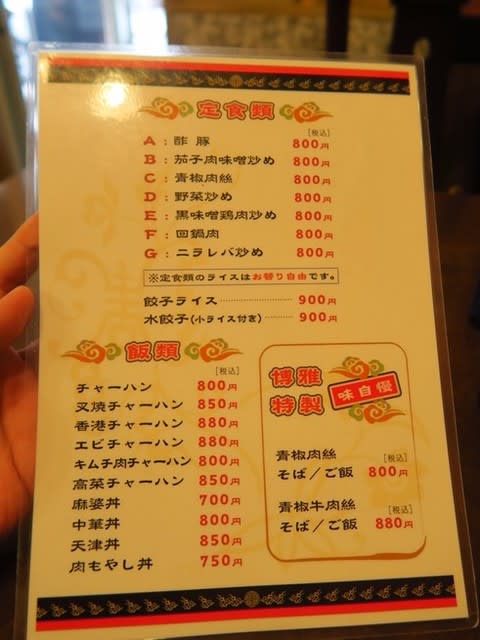 定食類
[税込]
A：酢豚 800円
B：茄子肉味噌炒め 800円
C：青椒肉絲 800円
D：野菜炒め 800円
E：黒味噌鶏肉炒め 800円
F：回鍋肉 800円
G：ニラレバ炒め 800円
※定食類のライスはお替り自由です。
餃子ライス 900円
水餃子(小ライス付き) 900円
飯類
[税込]
チャーハン 800円
叉焼チャーハン 850円
香港チャーハン 880円
エビチャーハン 880円
キムチ肉チャーハン 800円
高菜チャーハン 850円
麻婆丼 700円
中華丼 800円
天津丼 850円
肉もやし丼 750円
博雅
特製
味自慢
青椒肉絲 [税込]
そば／ご飯 800円
青椒牛肉絲 [税込]
そば／ご飯 880円